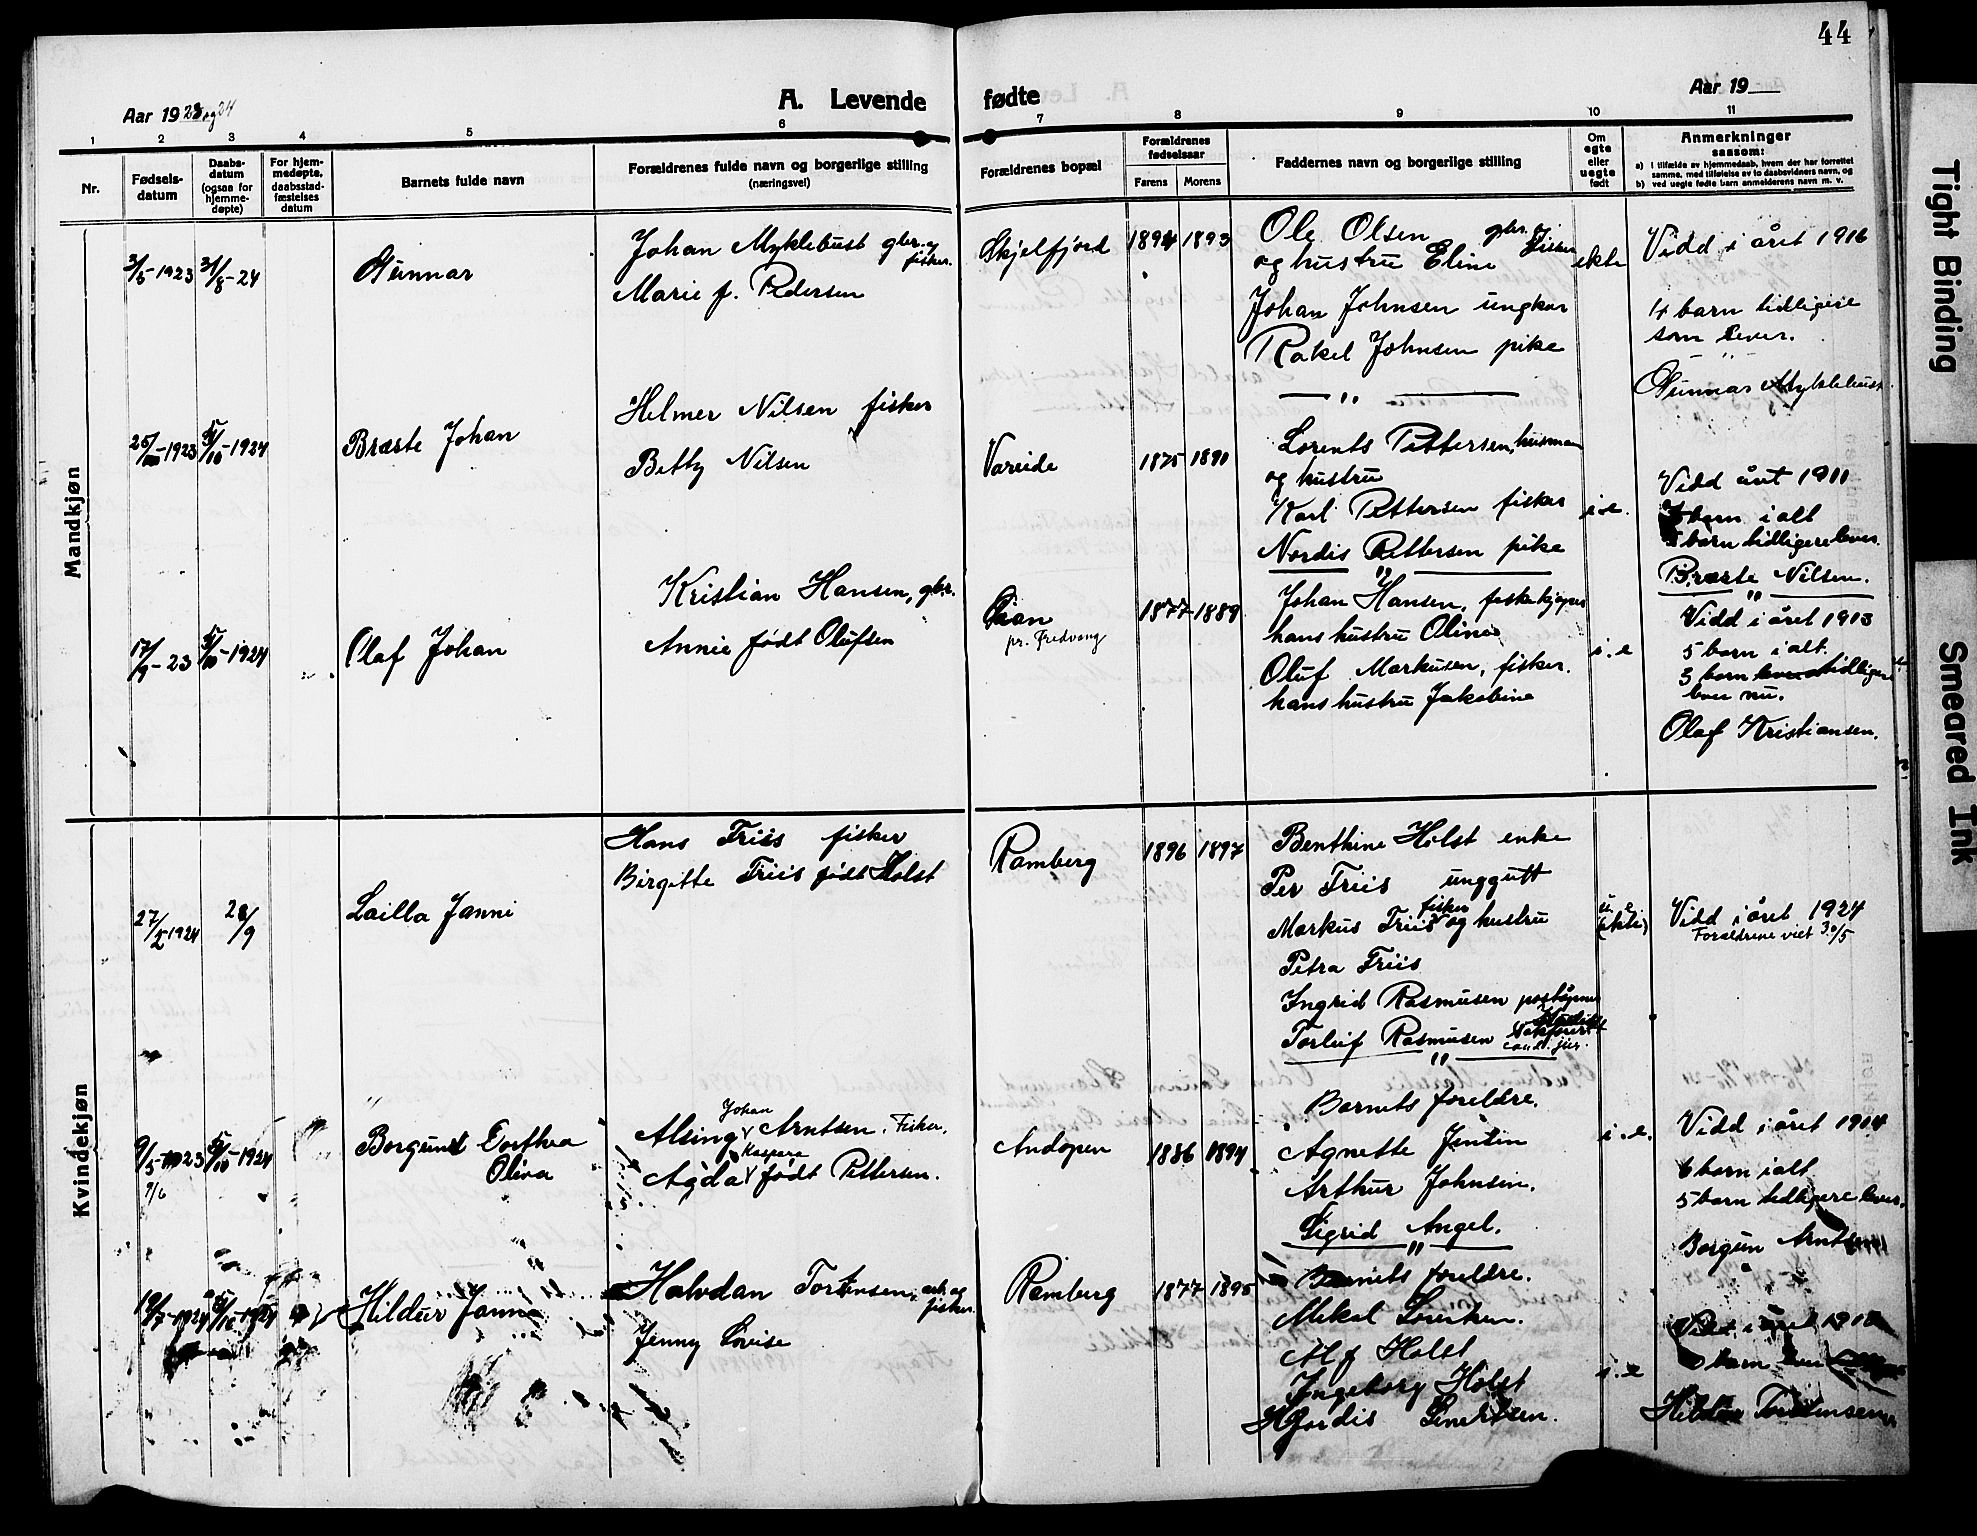 44
Aar 1923 og 24
A. Levende fødte
Aar 19
1 2 3 4 5 6 7 8 9 10 11
Nr.
Fødsels-
datum
Daabs-
datum
(ogsaa for
hjemme-
døpte)
For hjem-
medøpte,
daabsstad-
fæstelses
datum
Barnets fulde navn
Forældrenes fulde navn og borgerlige stilling
(næringsvei)
Forældrenes bopæl
Forældrenes
fødselsaar
Farens Morens
Faddernes navn og borgerlige stilling
Om
egte
eller
uegte
født
Anmerkninger
saasom:
a) i tilfælde av hjemmedaab, hvem der har forrettet
samme, med tilføielse av to daabsvidners navn, og
b) ved uegte fødte barn anmelderens navn m. v.
Mandkjøn
3/5-1923 31/8-24
Gunnar
Johan Myklebust gbr. og
fisker.
Marie f. Pedersen
Skjelfjord
1894 1893
Ole Olsen gbr. og
fisker
og hustru Eline
Johan Johnsen ungkar
Rakel Johnsen pike
ekte
Vidd i året 1916
4 barn tidligere
som lever.
Gunnar Myklebust
1923 5/10-1924
Bræste Johan
Helmer Nilsen fisker
Betty Nilsen
Vareide
1875 1891
Lorents Pettersen, husman
og hustru
Karl Pettersen fisker
Nordis Pettersen pike
i.e.
Vidd året 1911
barn i alt
barn tidligere lever.
Bræste Nilsen.
17/9-23 5/10-1924
Olaf Johan
Kristian Hansen, gbr.
Annie født Olufsen
pr. Fredvang
1877 1889
Johan Hansen, fiskekjøper
hans hustru Oline
Oluf Markusen, fisker.
hans hustru Jakobine
i.e
Vidd i året 1913
5 barn i alt.
3 barn tidligere
lever nu.
Olaf Kristiansen.
Kvindekjøn
27/2 1924 28/9
Lailla Janni
Hans Friis fisker
Birgitte Friis født Holst
Ramberg
1896 1897
Benthine Holst enke
Per Friis unggutt
fisker
Markus Friis og hustru
Petra Friis
Ingrid Rasmusen poståpner
Torleif Rasmusen
cand. jur.
u.e
(ekte)
Vidd i året 1924
Forældrene viet 30/5
9/5-1923 5/10-1924
7/6
Borgund Dorthea
Oliva
Johan
Alsing Arntsen. Fisker.
Kaspara
Agda født Pettersen.
Andopen
1886 1894
Barnets foreldre.
Agnette Jensen
Arthur Johnsen.
Sigrid Angel.
i.e.
Vidd i året 1914
6 barn i alt
5 barn tidligere lever.
Borgun Arntsen
19/7-1924 5/10-1924
Hildur Janna
Halvdan Torstensen, arb. og
fisker
Jenny Lovise
Ramberg
1877 1895
Barnets foreldre.
Mikal Lorentsen.
Alf Holst
Ingeborg Holst
Hjordis Lenertsen.
i.e
Vidd i året
barn
Hildur Torstensen
Tight Binding
Smeared Ink